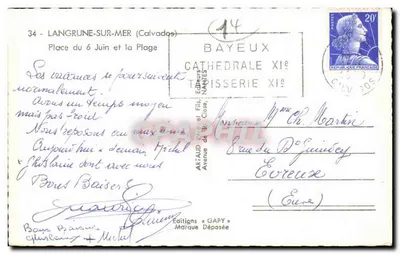 14
34 - LANGRUNE-SUR-MER (Calvados)
Place du 6 Juin et la Plage
BAYEUX
CATHEDRALE XIe
TAPISSERIE XIe
20F
Les vacances se poursuivent
normalement.
Avons un temps moyen
mais pas froid
Nous reposons au maximum
Aujourd'hui & demain, Michel
& Ghislaine sont avec nous
Bons Baisers
Bons Baisers
Ghislaine + Michel
ARTAUD Père et Fils, Editeurs
Avenue de la Close, NANTES
Editions "GABY"
Marque Déposée
Monsieur Mme Ch. Martin
8 rue du Dr
Evreux
(Eure)